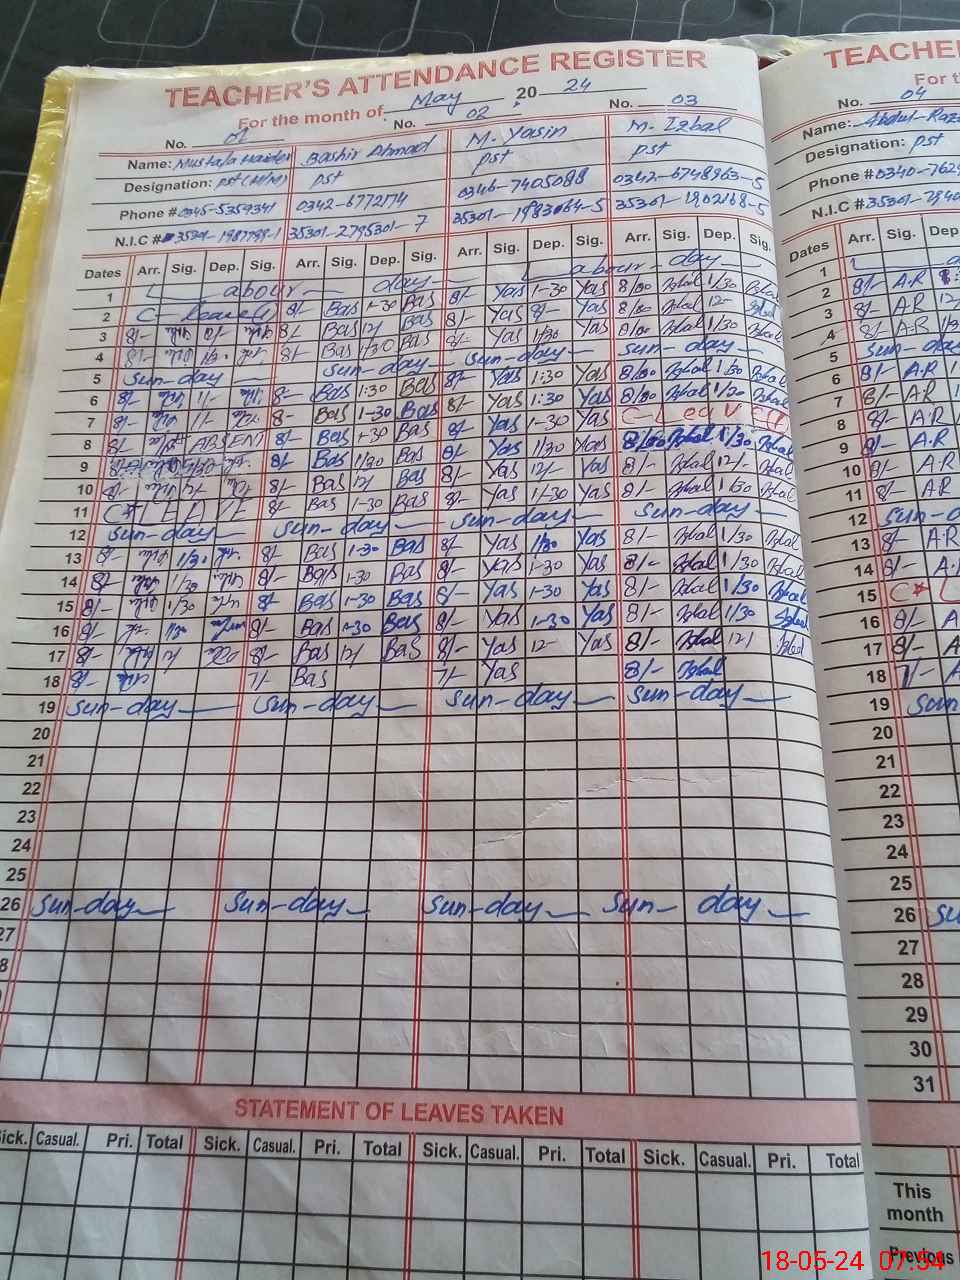 TEACHER'S ATTENDANCE REGISTER
For the month of May 2024
No. 01 No. 02 No. 03
Name: Mustafa Haider Bashir Ahmad M. Yasin M. Iqbal
Designation: PST (H/M) PST PST PST
Phone # 0345-5359341 0342-6772174 0346-7405088 0342-6748963-5
N.I.C # 35301-2795301-7 35301-1983064-5
Dates Arr. Sig. Dep. Sig. Arr. Sig. Dep. Sig. Arr. Sig. Dep. Sig. Arr. Sig. Dep. Sig.
1 Labour day Labour-day
2 C-Leave 8/- Bas 1-30 Bas 8/- Yas 1-30 Yas 8/00 Iqbal 1/30 Iqbal
3 8/- 8/- Bas 12/ Bas 8/- Yas Yas 8/00 Iqbal 12- Iqbal
4 8/- 8/- Bas 1/30 Bas 8/- Yas 1/30 Yas 8/00 Iqbal 1/30 Iqbal
5 Sun-day Sun-day Sun-day Sun-day
6 8/- 8- Bas 1:30 Bas 8/- Yas 1:30 Yas 8/00 Iqbal 1/30 Iqbal
7 8/- 8- Bas 1-30 Bas 8/- Yas 1:30 Yas 8/00 Iqbal 1/30 Iqbal
8 8/- ABSENT 8/- Bas 1-30 Bas 8/- Yas 1-30 Yas C-Leave
9 8/- Bas 1/30 Bas 8/- Yas 1/30 Yas 8/00 Iqbal 1/30 Iqbal
10 8/- 8/- Bas 12/ Bas 8/- Yas 12/- Yas 8/- Iqbal 12/- Iqbal
11 C*LEAVE 8/- Bas 1-30 Bas 8/- Yas 1-30 Yas 8/- Iqbal 1/30 Iqbal
12 Sun-day Sun-day Sun-day Sun-day
13 8/- 1/30 8/- Bas 1-30 Bas 8/- Yas 1/30 Yas 8/- Iqbal 1/30 Iqbal
14 8/- 1/30 8/- Bas 1-30 Bas 8/- Yas 1-30 Yas 8/- Iqbal 1/30 Iqbal
15 8/- 1/30 8/- Bas 1-30 Bas 8/- Yas 1-30 Yas 8/- Iqbal 1/30 Iqbal
16 8/- 1/30 8/- Bas 1-30 Bas 8/- Yas 1-30 Yas 8/- Iqbal 1/30 Iqbal
17 8/- 12/ 8/- Bas 12/ Bas 8/- Yas 12- Yas 8/- Iqbal 12/ Iqbal
18 8/- 7/- Bas 7/- Yas 8/- Iqbal
19 Sun-day Sun-day Sun-day Sun-day
20
21
22
23
24
25
26 Sun-day Sun-day Sun-day Sun-day
27
8
STATEMENT OF LEAVES TAKEN
Sick. Casual. Pri. Total Sick. Casual. Pri. Total Sick. Casual. Pri. Total Sick. Casual. Pri. Total
TEACHE
For th
No. 04
Name: Abdul-Raza
Designation: PST
Phone # 0340-762
N.I.C # 35301-
Dates Arr. Sig. Dep
1
2 8/- A.R
3 8/- AR 12/
4 8/- A.R
5 Sun-day
6 8/- A.R
7 8/- A.R
8 8/- A.R
9 8/- A.R
10 8/- AR
11 8/- AR
12 Sun-d
13 8/- A.R
14 8/- A.
15 C* L
16 8/- A
17 8/- A
18 7/- A
19 Sun
20
21
22
23
24
25
26 Su
27
28
29
30
31
This
month
Previous
18-05-24 07:54